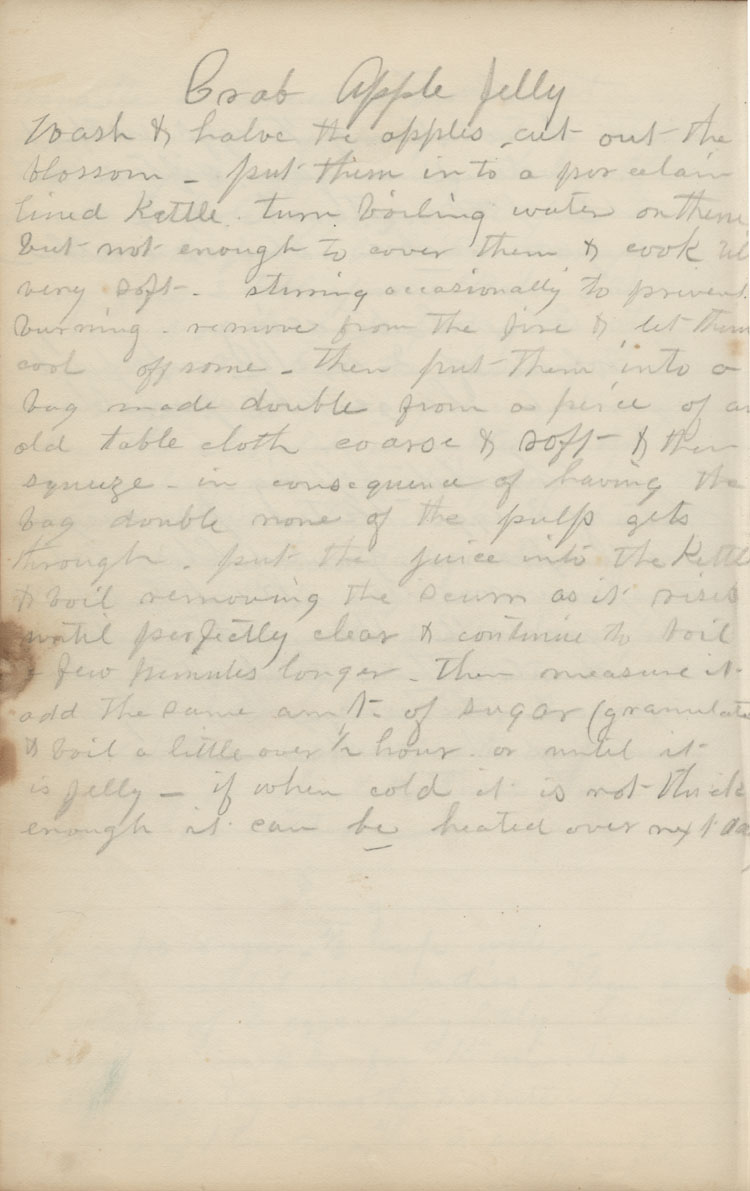 Crab Apple Jelly
Wash & halve the apples, cut out the
blossom - put them into a porcelain
lined Kettle. turn boiling water on them
but not enough to cover them & cook til
very soft - stirring occasionally to prevent
burning - remove from the fire & let them
cool off some - then put them into a
bag made double from a peice of an
old table cloth coarse & soft & then
squeeze - in consequence of having the
bag double none of the pulp gets
through - put the juice into the Kettle
& boil removing the scum as it rises
until perfectly clear & continue to boil
a few minutes longer - then measure it
add the same am't - of sugar (granulate
& boil a little over 1/2 hour. or until it
is jelly - if when cold it is not thick
enough it can be heated over next da